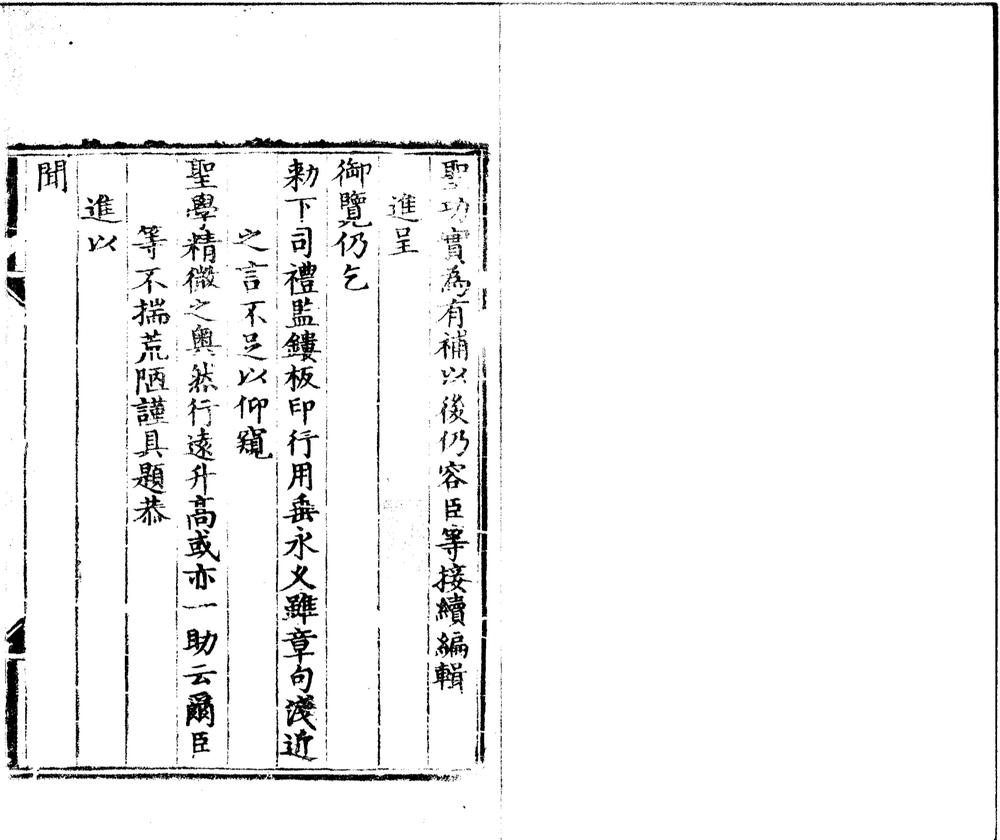 聖功實為有補以後仍容臣等接續編輯
進呈
御覽仍乞
勅下司禮監鏤板印行用垂永乂雖章句淺近
之言不足以仰窺
聖學精微之奧然行遠升高或亦一助云爾臣
等不揣荒陋謹具題恭
進以
聞